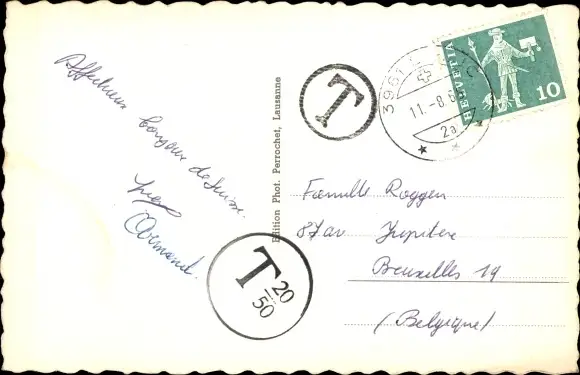 Affectueux
bonjour de Suisse.
Armand.
Edition Phot. Perrochet, Lausanne
T
T 20
50
3961
11.-8.6
2a
HELVETIA
10
Famille Roggen
87 av Jupiter
Bruxelles 19
(Belgique)